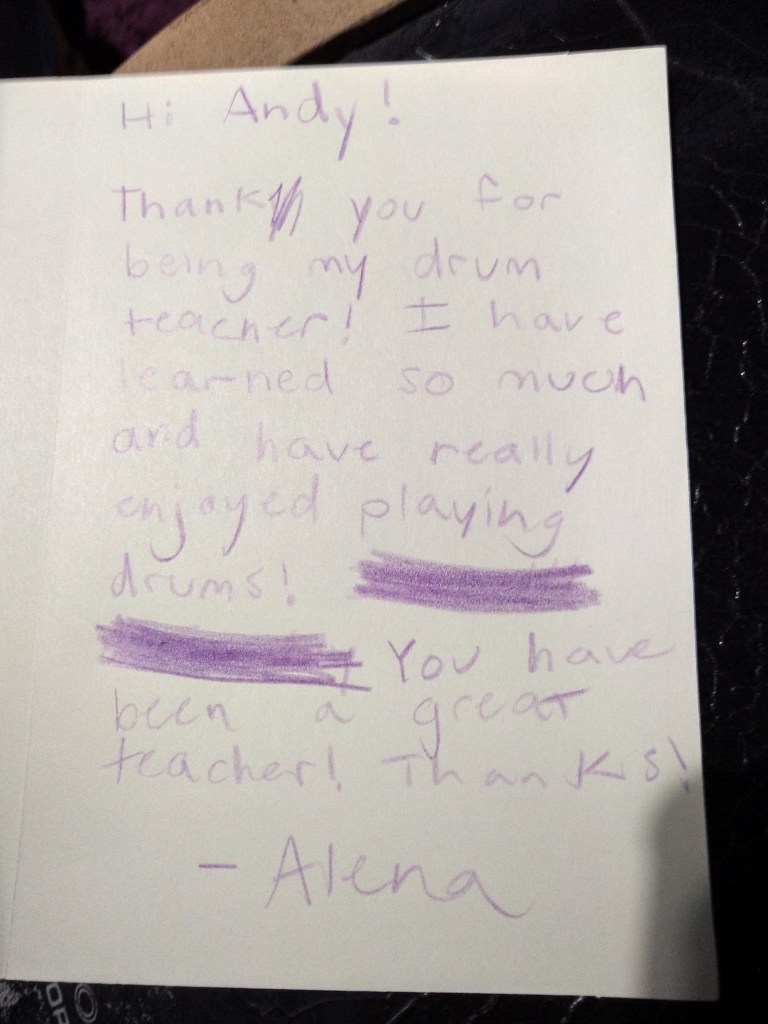 Hi Andy!
Thank you for
being my drum
teacher! I have
learned so much
and have really
enjoyed playing
drums!
You have
been a great
teacher! Thanks!
- Alena